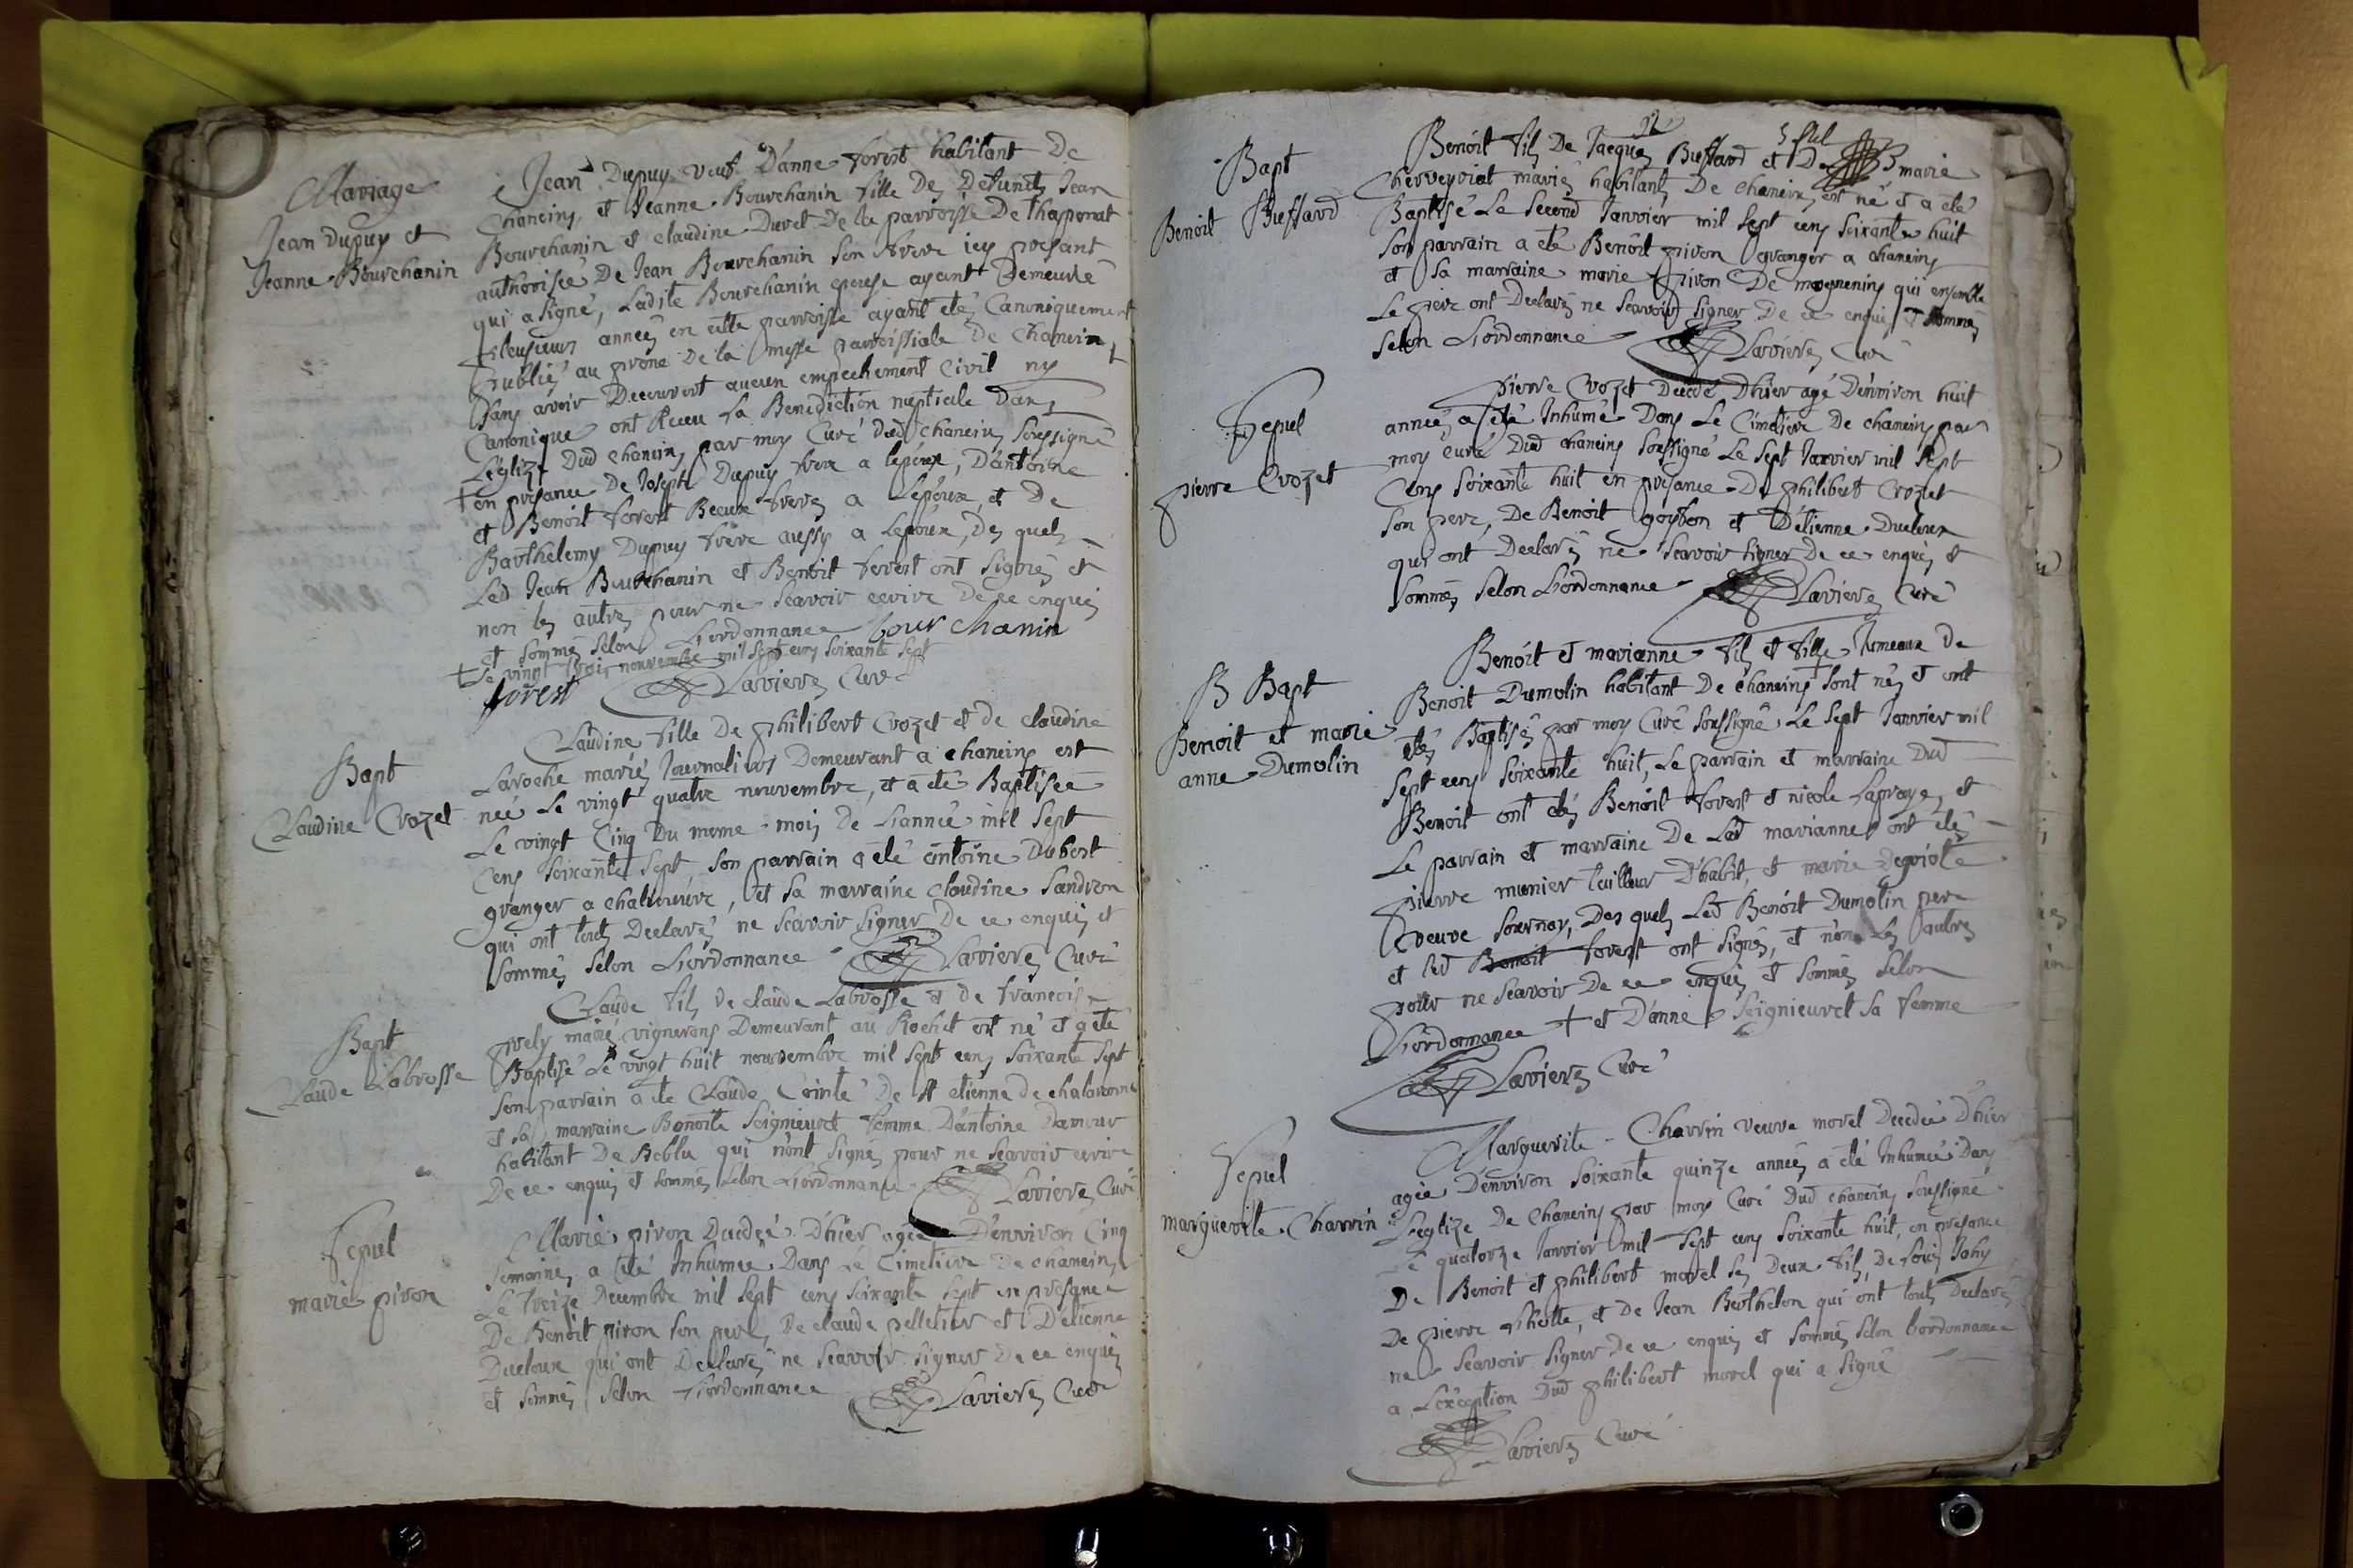 Mariage
Jean Dupuy et
Jeanne Bourchanin
Jean Dupuy veuf D'anne forest habitant De
Chaneins et Jeanne Bourchanin fille Des Defuncts Jean
Bourchanin et claudine Duret De la parroisse De thaponat
authorisée De Jean Bourchanin son frere icy present
qui a signé, Ladite Bourchanin epouse ayant Demeurée
plusieurs années en cette parroisse ayant etés Canoniquement
publiés au prône De la messe parroissiale de Chaneins
sans avoir Decouvert aucun empechement Civil ny
Canonique ont Receu La Benediction nuptiale Dans
L'eglize Dud Chaneins par moy Curé dud Chaneins soussigné +
+ en presance De Joseph Dupuy frere a lepoux, D'antoine
et Benoit forest Beaux freres a Lepoux, et De
Barthelemy Dupuy frere aussy a Lepoux, Des quels
Led Jean Bourchanin et Benoit forest ont signés et
non les autres pour ne Scavoir ecrire De ce enquis
et sommés selon L'ordonnance bour chanin
+ le vingt trois nouvembre mil sept cens soixante sept
forest Lavieres Curé
Bapt
Claudine Crozet
Claudine fille De philibert Crozet et de claudine
Laroche mariés Journaliers Demeurant a chaneins est
née Le vingt quatre nouvembre, et a eté Baptisée
Le vingt Cinq Du meme mois De L'année mil sept
Cens soixante sept, son parrain a eté antoine Dubost
granger a , et sa marraine claudine sandron
qui ont touts Declarés ne scavoir signer De ce enquis et
sommés selon L'ordonnance Lavieres Curé
Bapt
Claude Labrosse
Claude fils de claude Labrosse et de francoise
prely mariés vignerons Demeurant au Rochet est né et a eté
Baptisé Le vingt huit nouvembre mil sept cens soixante sept
son parrain a eté Claude Cointe De st etienne de chalaronne
et sa marraine Benoite Seignieuret femme D'antoine Damour
habitant De qui n'ont signés pour ne scavoir ecrire
De ce enquis et sommés selon L'ordonnance Lavieres Curé
Sepul
marie pivon
Marie pivon Decedée D'hier agée D'environ Cinq
semaines a eté Inhumée Dans Le Cimetiere De chaneins
Le treize Decembre mil sept cens soixante sept en presance
De Benoit pivon son pere, De claude pelletier et D'etienne
Ducloux qui ont Declarés ne scavoir signer De ce enquis
et sommés selon L'ordonnance Lavieres Curé
12
Bapt
Benoit Buffard
Benoit fils De Jacques Buffard et De marie
Cherveyriat mariés habitants De chaneins est né et a eté
Baptisé Le second Janvier mil sept cens soixante huit
son parrain a eté Benoit pivon granger a chaneins
et sa marraine marie pivon De mogneneins qui ensemble
Le pere ont Declarés ne scavoir signer De ce enquis et sommés
selon L'ordonnance Lavieres Curé
Sepul
pierre Crozet
pierre Crozet Decedé D'hier agé D'environ huit
années a eté Inhumé Dans Le Cimetiere De chaneins par
moy curé Dud chaneins soussigné Le sept Janvier mil sept
Cens soixante huit en presance De philibert Crozet
son pere, De Benoit goybon et D'etienne Ducloux
qui ont Declarés ne scavoir signer De ce enquis et
sommés selon L'ordonnance Lavieres Curé
B Bapt
Benoit et marie
anne Dumolin
Benoit et marianne fils et fille Jumeaux de
Benoit Dumolin habitant De chaneins + sont nés et ont
etés Baptisés par moy Curé soussigné Le sept Janvier mil
sept cens soixante huit, Le parrain et marraine Dud
Benoit ont etés Benoit forest et nicole Laproye, et
Le parrain et marraine De Lad marianne ont etés
pierre munier tailleur D'habit, et marie
veuve sournay, Des quels Led Benoit Dumolin pere
et led Benoit forest ont signés, et non Les autres
pour ne scavoir De ce enquis et sommés selon
L'ordonnance + et D'anne Seignieuret sa femme
Lavieres Curé
Sepul
marguerite Charrin
Marguerite Charrin veuve morel Decedée D'hier
agée D'environ soixante quinze années a eté Inhumée Dans
L'eglize De Chaneins par moy Curé Dud chaneins soussigné
Le quatorze Janvier mil sept cens soixante huit, en presance
De Benoit et philibert morel ses Deux fils, De
De pierre , et de Jean Berthelon qui ont touts Declarés
ne scavoir signer De ce enquis et sommés selon L'ordonnance
a L'exception Dud philibert morel qui a signé
Lavieres Curé